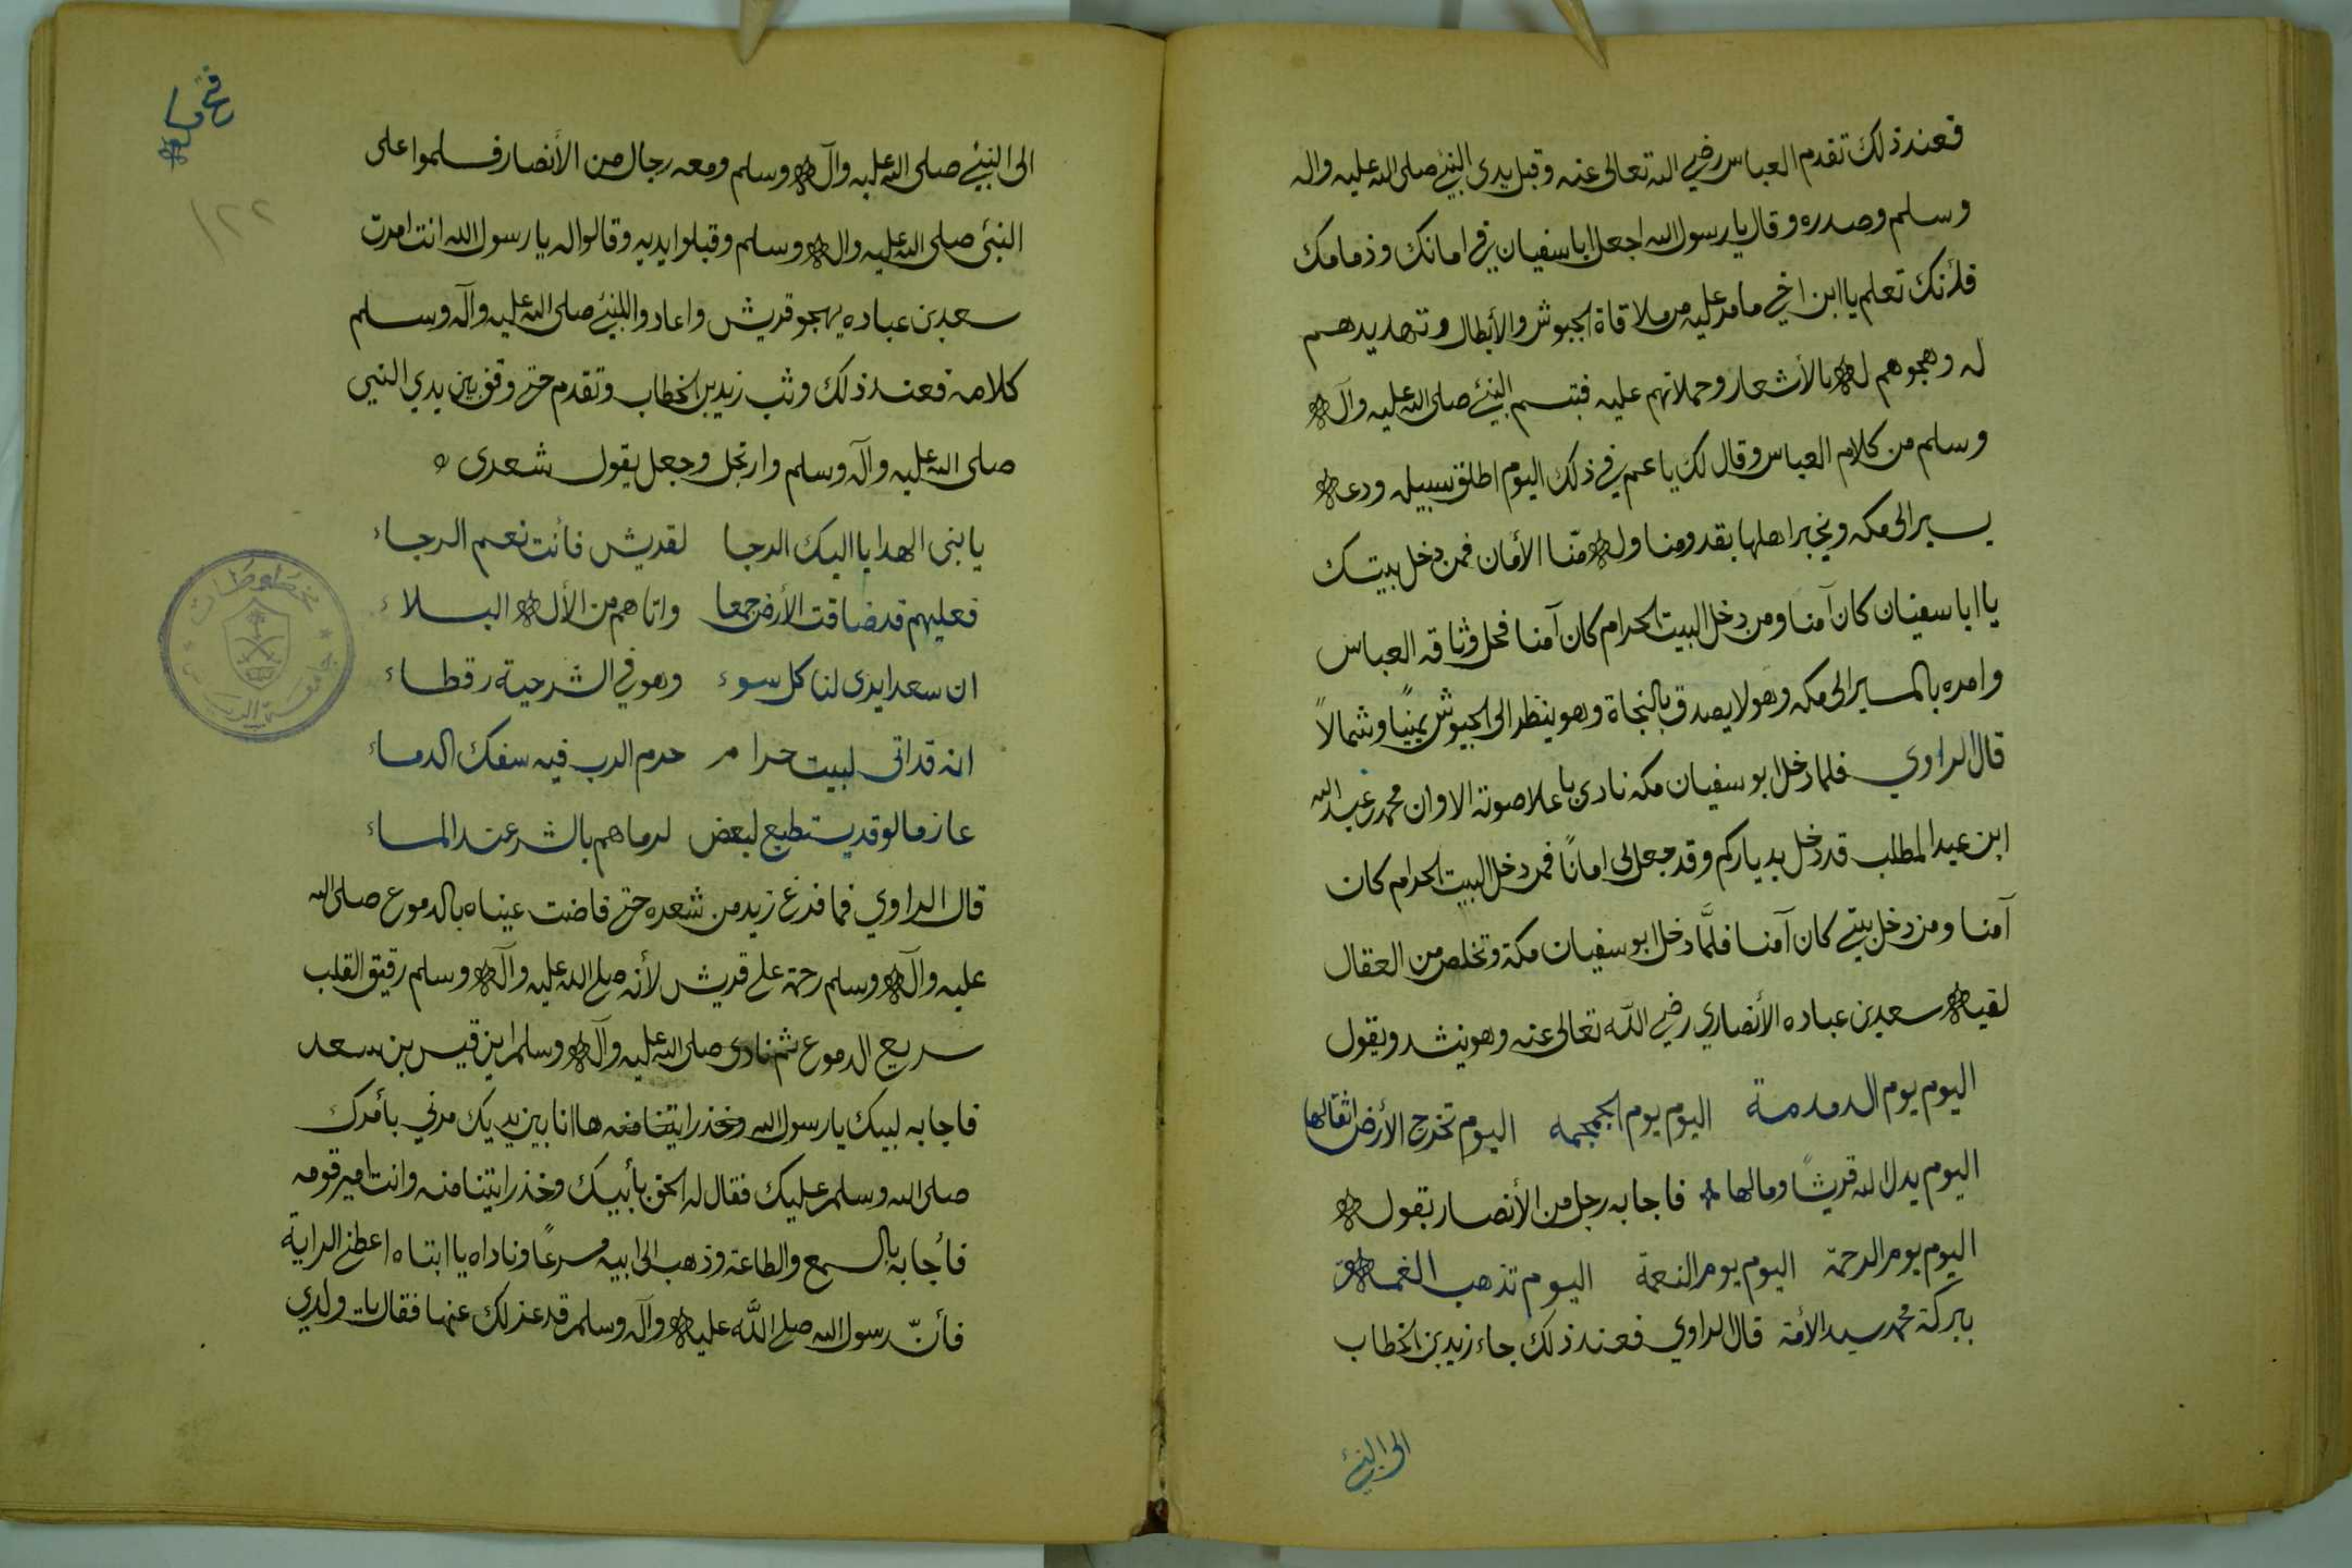 فعند ذلك تقدم العباس رضي الله تعالى عنه وقبل يدي النبئ صلى الله عليه واله
وسلم وصدره وقال يا رسول الله اجعل ابا سفيان في امانك وذمامك
فلأنك تعلم يا ابن اخي ما مر عليه من ملاقاة الجيوش والأبطال وتهديدهم
له وهجوهم له بالأشعار وحملاتهم عليه فتبسم النبئ صلى الله عليه وآله
وسلم من كلام العباس وقال لك يا عم في ذلك اليوم اطلق سبيله ودعه
يسير الى مكه ويخبر اهلها بقدومنا وله منّا الأمان فمن دخل بيتك
يا ابا سفيان كان آمنا ومن دخل البيت الحرام كان آمنا فحل وثاقه العباس
وامره بالمسير الى مكه وهو لا يصدق بالنجاة وهو ينظر الى الجيوش يمينًا وشمالاً
قال الراوي فلما دخل ابو سفيان مكه نادى با علا صوته الا وان محمد بن عبد الله
ابن عبد المطلب قد دخل بدياركم وقد جعل لي امانًا فمن دخل البيت الحرام كان
آمنا ومن دخل بيتي كان آمنا فلمَّا دخل ابو سفيان مكة وتخلص من العقال
لقيه سعد بن عباده الأنصاري رضي اللّه تعالى عنه وهو ينشد ويقول
اليوم يوم الدمدمة اليوم يوم الجمجمه اليوم تخرج الأرض اثقالها
اليوم يدل الله قريشًا ومالها فاجابه رجل من الأنصار بقوله
اليوم يوم الرحمة اليوم يوم النعمة اليوم تذهب الغمه
ببركة محمد سيد الأمة قال الراوي فعند ذلك جاء زيد بن الخطاب
الى النبئ
فتح مكه
١٢٢
الى النبئ صلى الله عليه وآله وسلم ومعه رجال من الأنصار فسلموا على
النبئ صلى الله عليه واله وسلم وقبلوا يديه وقالوا له يا رسول الله انت امرت
سعد بن عباده يهجو قريش واعادوا للنبئ صلى الله عليه وآله وسلم
كلامه فعند ذلك وثب زيد بن الخطاب وتقدم حتى وقف بين يدي النبي
صلى الله عليه وآله وسلم وارتجل وجعل يقول شعرى
يا بنى الهدا يا اليك الرجا لقريش فأنت نعم الرجاء
فعليهم قد ضاقت الأرض جمعا واتاهم من الأله البلاء
ان سعدا يرى لنا كل سوء وهو في الشر حية رقطاء
انه قد اتى لبيت حرام حرم الرب فيه سفك الدماء
عازما لو قد يستطيع لبعض لرماهم بالشر عند المساء
قال الراوي فما فرغ زيد من شعره حتى فاضت عيناه بالدموع صلى الله
عليه وآله وسلم رحمة على قريش لأنه صلى الله عليه وآله وسلم رقيق القلب
سريع الدموع ثم نادى صلى الله عليه وآله وسلم اين قيس بن سعد
فاجابه لبيك يا رسول الله وخذ رايتنا منه ها انا بين يديك مرني بأمرك
صلى الله وسلم عليك فقال له الحق بأبيك وخذ رايتنا منه وانت امير قومه
فأجابه بالسمع والطاعة وذهب الى ابيه مسرعًا وناداه يا ابتاه اعطني الراية
فأنّ رسول الله صلى اللَّه عليه وآله وسلم قد عزلك عنها فقال يا ولدي
مخطوطات
جامعة الريـ